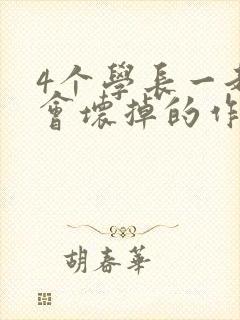 4个學長一
會壞掉的作
胡春華